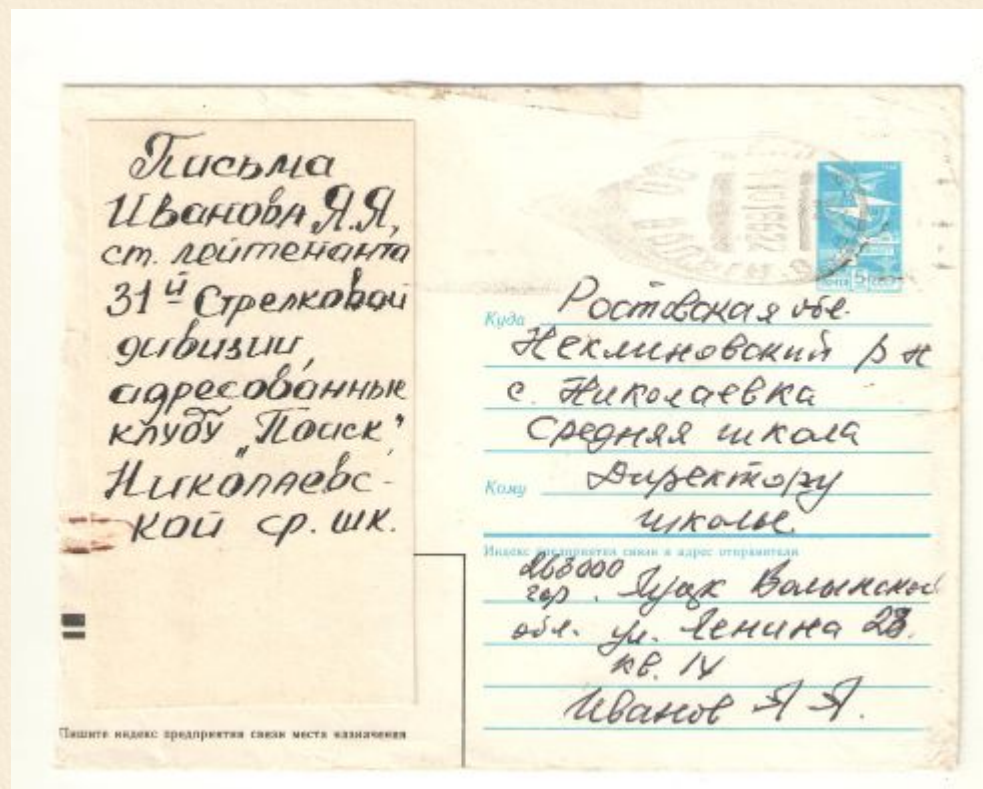 Письма
Иванова Я.Я,
ст. лейтенанта
31й Стрелковой
дивизии,
адресованные
клубу „Поиск"
Николаевс-
кой ср. шк.
Пишите индекс предприятия связи места назначения
ПОЧТА 5 СССР
Куда Ростовская обл.
Неклиновский р н
с. Николаевка
Средняя школа
Кому Директору
школы
Индекс предприятия связи и адрес отправителя
263000
гор. Луцк Волынской
обл. ул. Ленина 23.
кв. 14
Иванов Я Я.